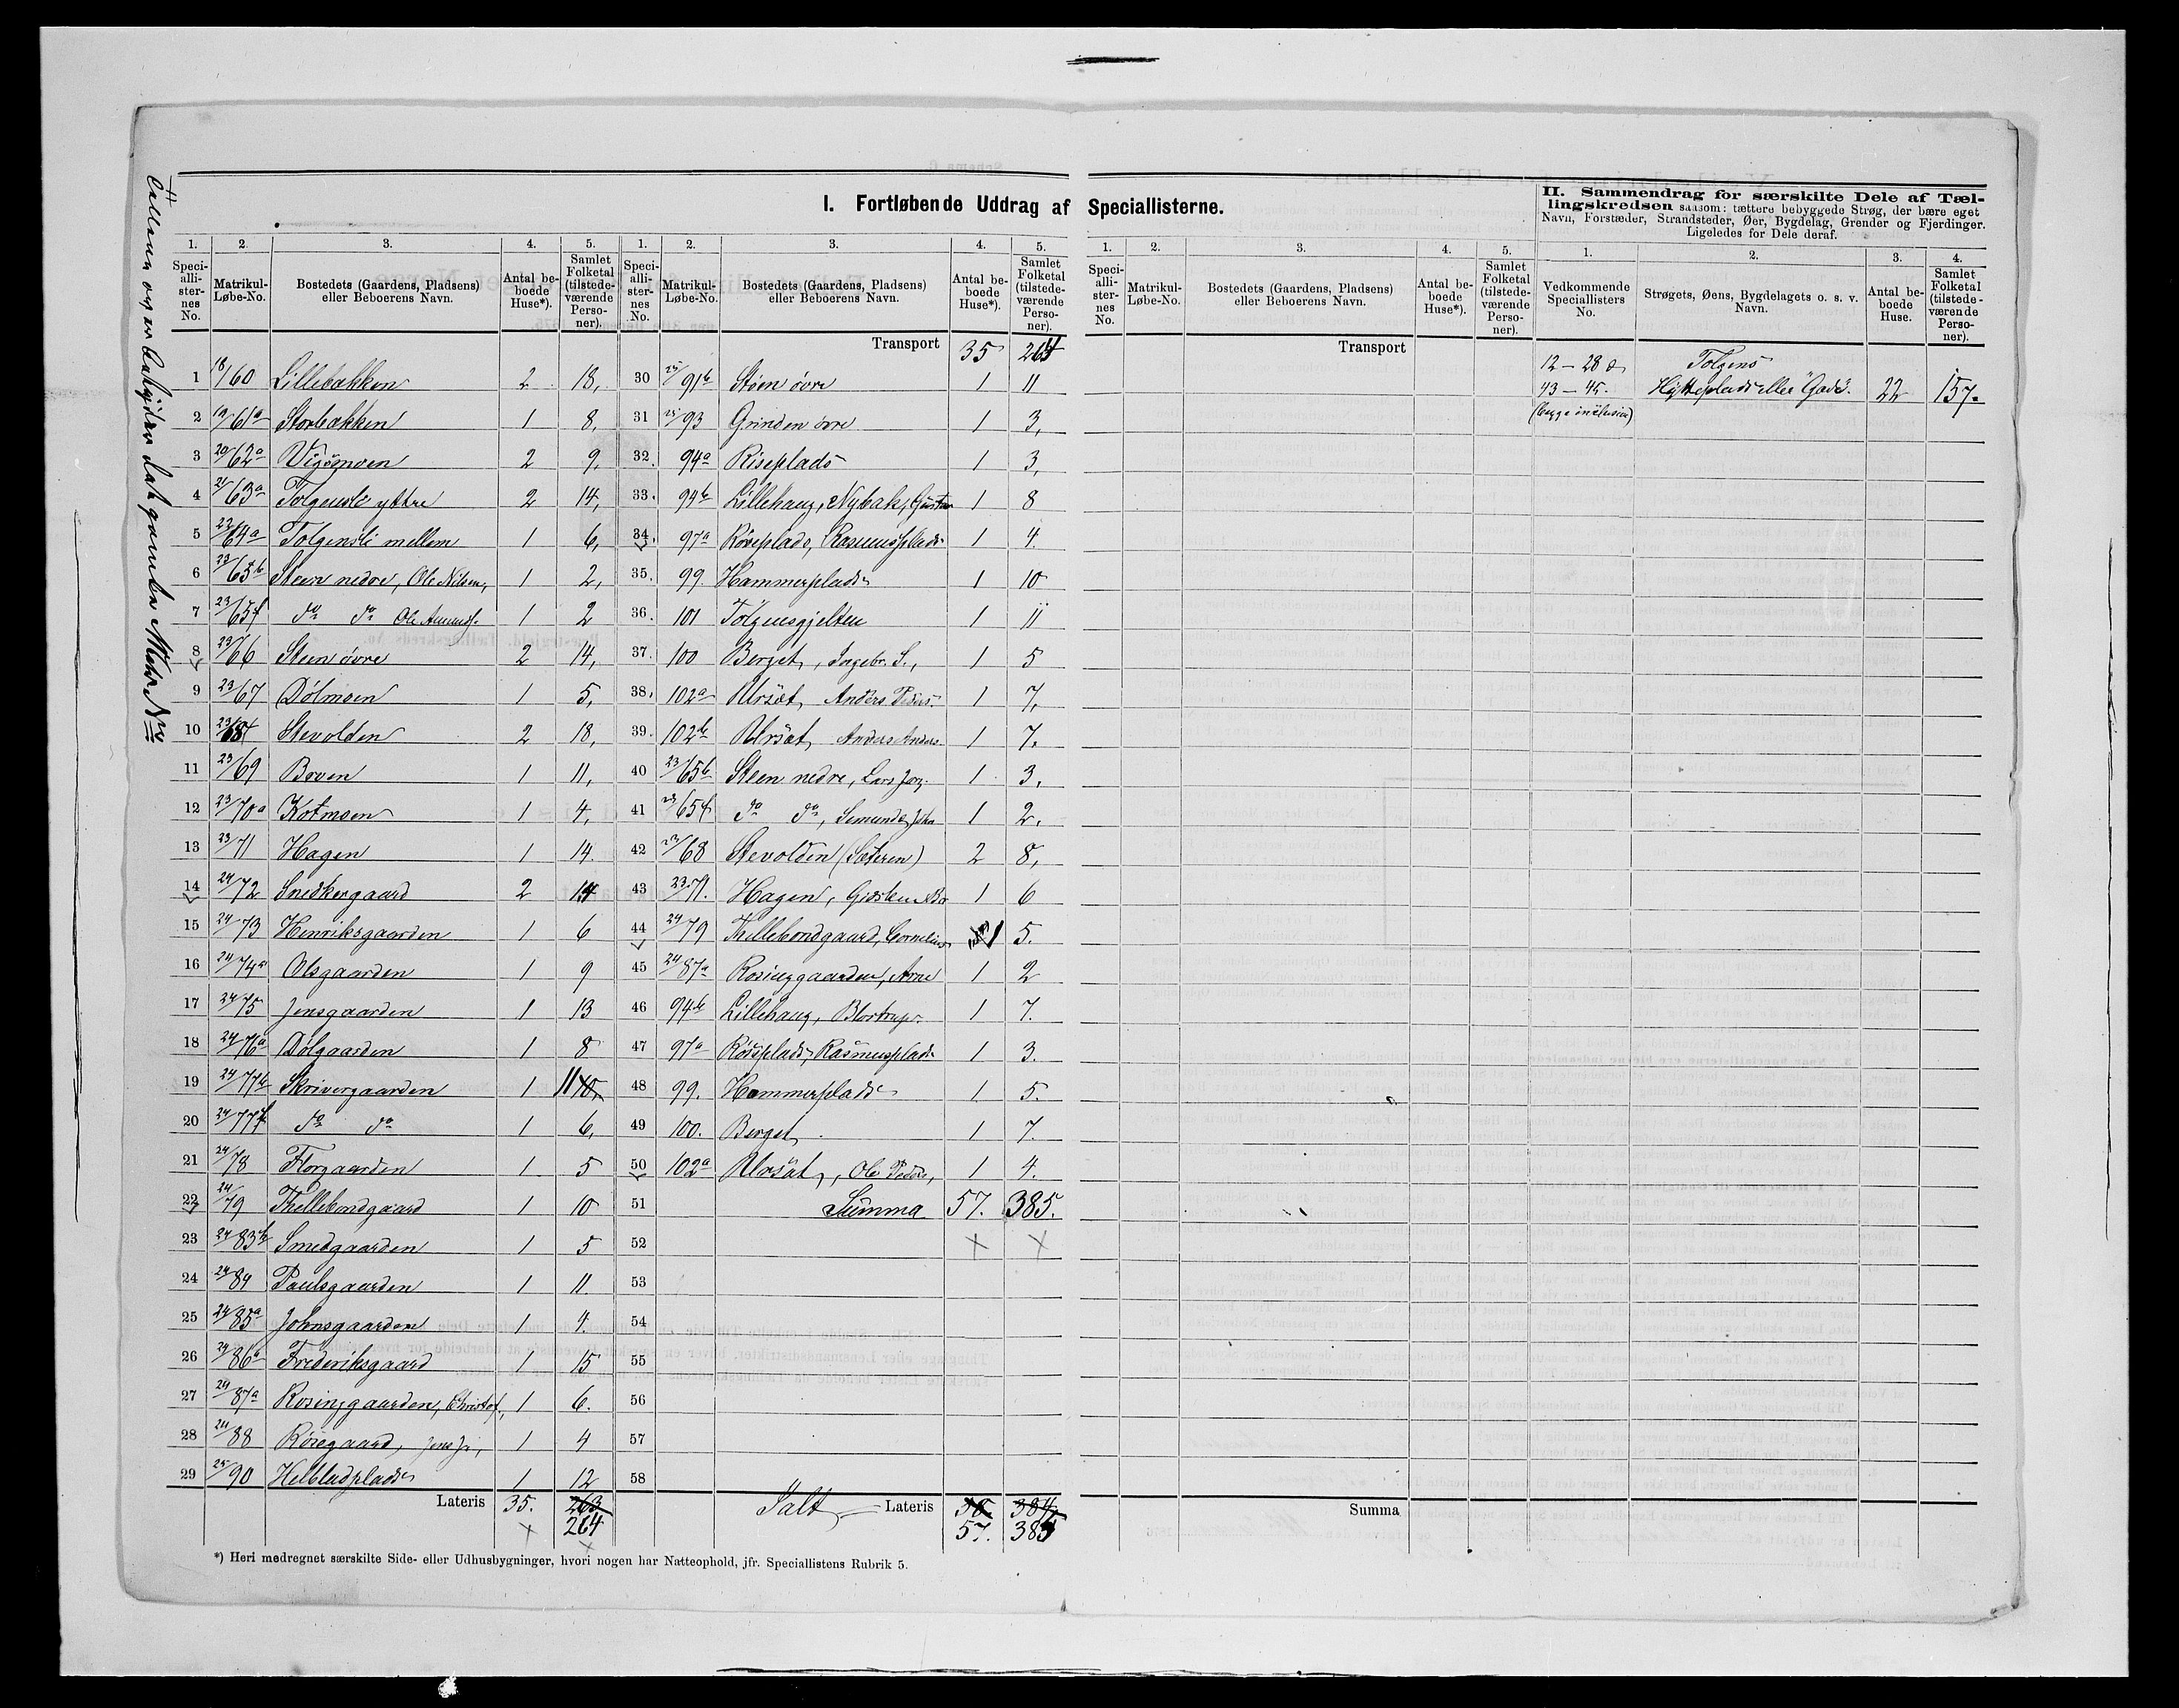 I. Fortløbende Uddrag af Speciallisterne.
II. Sammendrag for særskilte Dele af Tæl-
lingskredsen saasom: tættere bebyggede Strøg, der bære eget
Navn, Forstæder, Strandsteder, Øer, Bygdelag, Grender og Fjerdinger.
Ligeledes for Dele deraf.
1. 2. 3. 4. 5. 1. 2. 3. 4. 5. 1. 2. 3. 4. 5. 1. 2. 3. 4.
Speci-alli-ster-nes No. Matrikul-Løbe-No. Bostedets (Gaardens, Pladsens) eller Beboerens Navn. Antal be-boede Huse*). Samlet Folketal (tilstede-værende Perso-ner).
Speci-alli-ster-nes No. Matrikul-Løbe-No. Bostedets (Gaardens, Pladsens) eller Beboerens Navn. Antal be-boede Huse*). Samlet Folketal (tilstede-værende Perso-ner).
Speci-alli-ster-nes No. Matrikul-Løbe-No. Bostedets (Gaardens, Pladsens) eller Beboerens Navn. Antal be-boede Huse*). Samlet Folketal (tilstede-værende Perso-ner).
Vedkommende Speciallisters No. Strøgets, Øens, Bygdelagets o. s. v. Navn. Antal be-boede Huse. Samlet Folketal (tilstede-værende Perso-ner).
1 18/60 Lillebakken 2 18,
2 19/61a Storbakken 1 8,
3 20/62a Vigsmoen 2 9,
4 21/63a Tolgensli yttre 2 14,
5 22/64a Tolgensli mellem 1 6,
6 23/65b Steen nedre, Ole Nilsen, 1 2,
7 23/65f do do Ole Amunds. 1 2
8 23/66 Steen övre 2 14,
9 23/67 Dölmoen 1 5,
10 23/68 Stevolden 2 18,
11 23/69 Broen 1 11,
12 23/70a Kotmoen 1 4,
13 23/71 Hagen 1 14.
14 24/72 Snedkergaard 2 14
15 24/73 Henriksgaarden 1 6
16 24/74a Olsgaarden 1 9
17 24/75 Jensgaarden 1 13
18 24/76a Dölgaarden 1 8
19 24/77b Skrivergaarden 1 11 10,
20 24/77f do do 1 6,
21 24/78 Florgaarden 1 5
22 24/79 Thellebondgaard 1 10
23 24/83b Smedgaarden 1 5
24 24/84 Paulsgaarden 1 11.
25 24/85a Johnsgaarden 1 4.
26 24/86a Frederiksgaard 1 15
27 24/87a Rosinggaarden, Christof., 1 6.
28 24/88 Röisegaard, 1 4
29 25/90 Helbladplads 1 12
Lateris 35. 263
264
Transport 35 264
30 25/91b Stöen övre 1 11
31 25/93 Grinden övre 1 3,
32 94a Riseplads 1 3,
33. 94b Lillehaug, Nybak, 1 8
34. 97a Röseplads, Rasmusplads 1 4.
35. 99. Hammerplads 1 10
36. 101 Tolgensgjelten 1 11
37. 100 Berget, Ingebr. S., 1 5
38, 102a Ursæt, Anders Peders. 1 7,
39. 102b Ursæt, Anders Anders. 1 7.
40 23/65b Steen nedre, Lars 1 3,
41 23/65f do do, John 1 2.
42 23/68 Stevolden (Sæteren) 2 8,
43 23.71. Hagen, 1 6
44 24/79 Thellebondgaard, Cornelius 1 5.
45 24/87a Rosinggaarden, Arne 1 2
46 94b Lillehaug, 1 7.
47 97a Röiseplads, Rasmusplads 1 3.
48 99. Hammerplads 1 5.
49 100. Berget 1 7.
50 102a Ursæt, Ole Peders, 1 4.
51 Summa 57. 385.
52
53
54
55
56
57
58
Ialt Lateris 384
57. 385
Transport
Summa
12 – 28 o Tolgens
43 – 45. Hytteplads eller "Gade". 22 157.
(begge inclusive)
*) Heri medregnet særskilte Side- eller Udhusbygninger, hvori nogen har Natteophold, jfr. Speciallistens Rubrik 5.